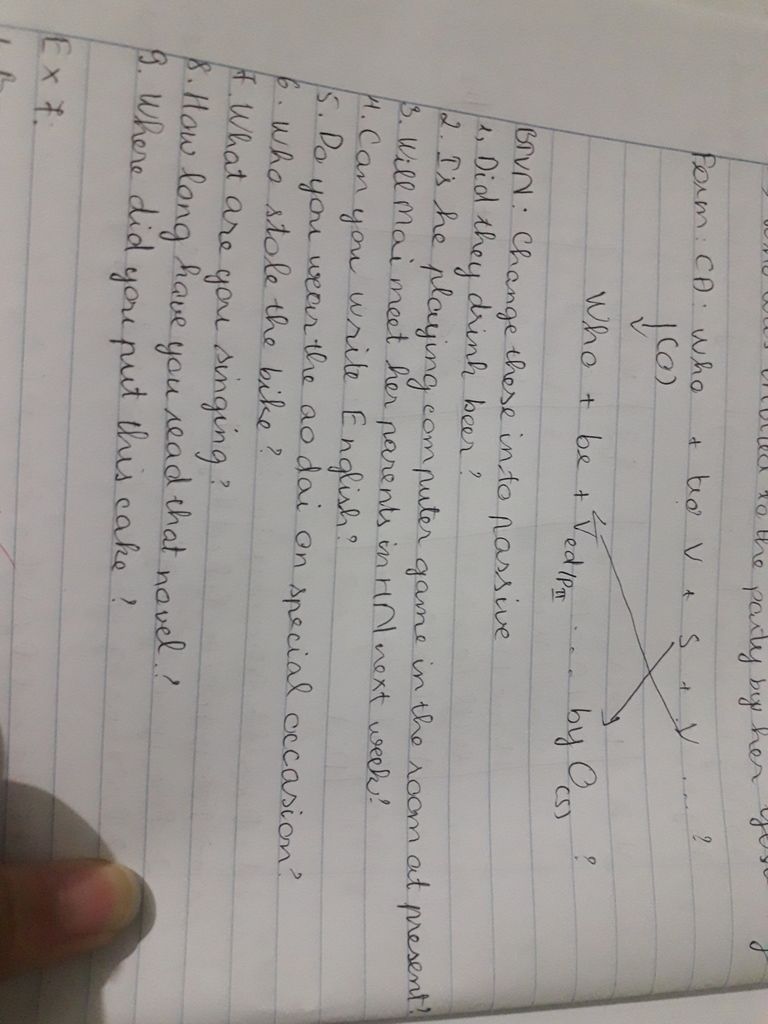 to the party by her
Form: CĐ: Who + trợ V + S + V ... ?
(O)
Who + be + Ved/PII ... by O(S) ?
BTVN: Change these into passive
1, Did they drink beer?
2. Is he playing computer game in the room at present?
3. Will Mai meet her parents in HN next week?
4. Can you write English?
5. Do you wear the ao dai on special occasion?
6. Who stole the bike?
7. What are you singing?
8. How long have you read that novel?
9. Where did you put this cake?
Ex 7.